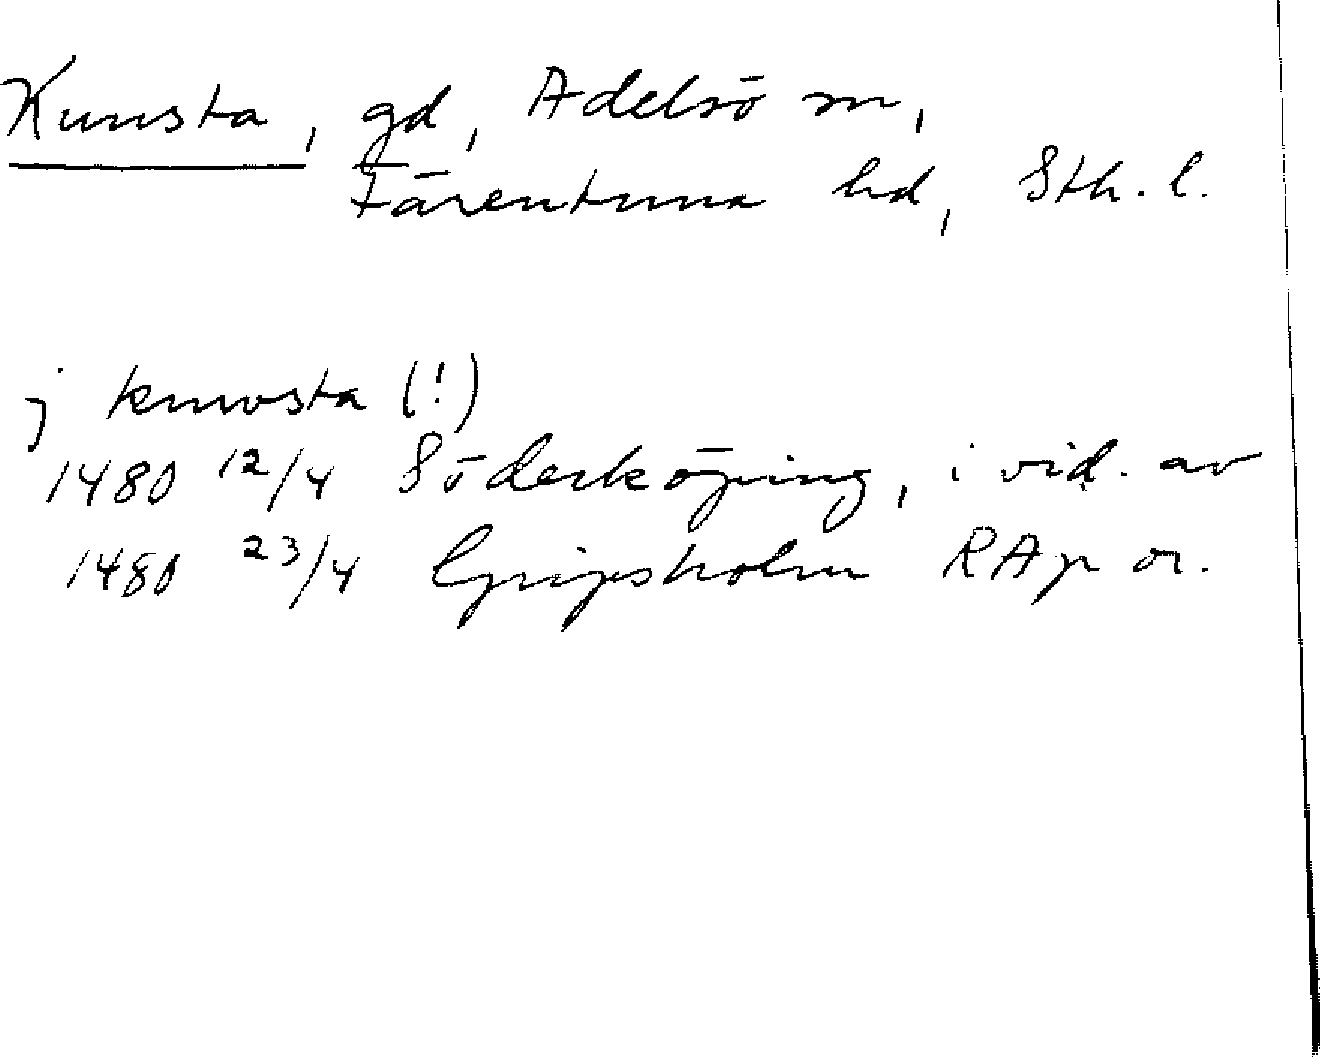 Kunsta, gd, Adelsö sn,
Färentuna hd, Sth. l.
j knuosta (!)
1480 12/4 Söderköping, i vid. av
1480 23/4 Gripsholm RAp or.